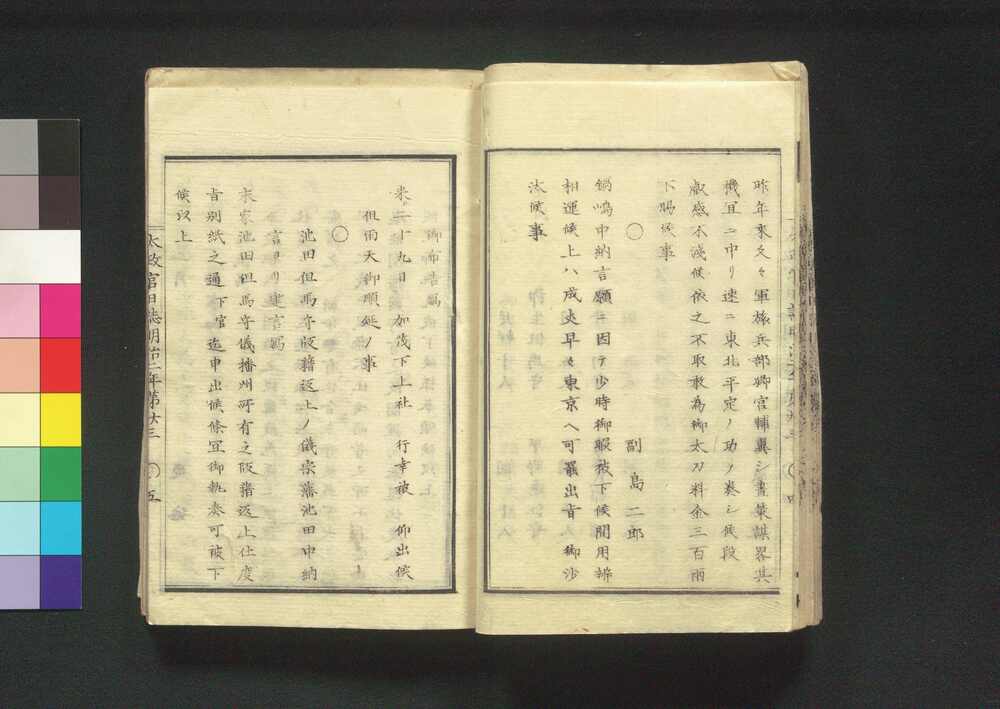 昨年來久々軍旅兵部卿宮輔翼シ畫策謀畧其
機宜ニ中リ速ニ東北平定ノ功ヲ奏シ候段
叡感不淺候依之不取敢為御太刀料金三百兩
下賜候事
○
副島二郎
鍋嶋中納言願ニ因テ少時御暇被下候間用辨
相運候上ハ成丈早々東京ヘ可罷出旨御沙
汰候事
來二十九日加茂下上社 行幸被 仰出候
但雨天御順延ノ事
○
池田但馬守版籍返上ノ儀宗藩池田中納
言ヨリ建言寫
末家池田但馬守儀播州所有之版籍返上仕度
旨別紙之通下官迄申出候條宜御執奏可被下
候以上
太政官日誌明治二年第廿三
○五